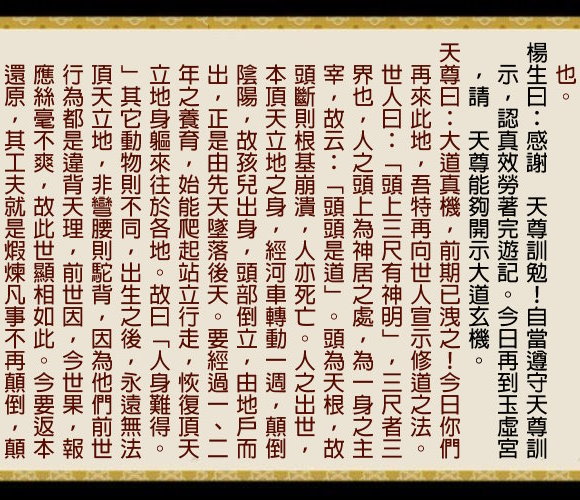 也。
楊生曰：感謝　天尊訓勉！自當遵守天尊訓
示，認真效勞著完遊記。今日再到玉虛宮
，請　天尊能夠開示大道玄機。
天尊曰：大道真機，前期已洩之！今日你們
再來此地，吾特再向世人宣示修道之法。
世人曰：「頭上三尺有神明」，三尺者三
界也，人之頭上為神居之處，為一身之主
宰，故云：「頭頭是道」。頭為天根，故
頭斷則根基崩潰，人亦死亡。人之出世，
本頂天立地之身，經河車轉動一週，顛倒
陰陽，故孩兒出身，頭部倒立，由地戶而
出，正是由先天墜落後天。要經過一、二
年之養育，始能爬起站立行走，恢復頂天
立地身軀來往於各地。故曰「人身難得。
」其它動物則不同，出生之後，永遠無法
頂天立地，非彎腰則駝背，因為他們前世
行為都是違背天理，前世因，今世果，報
應絲毫不爽，故此世顯相如此。今要返本
還原，其工夫就是煆煉凡事不再顛倒，顛